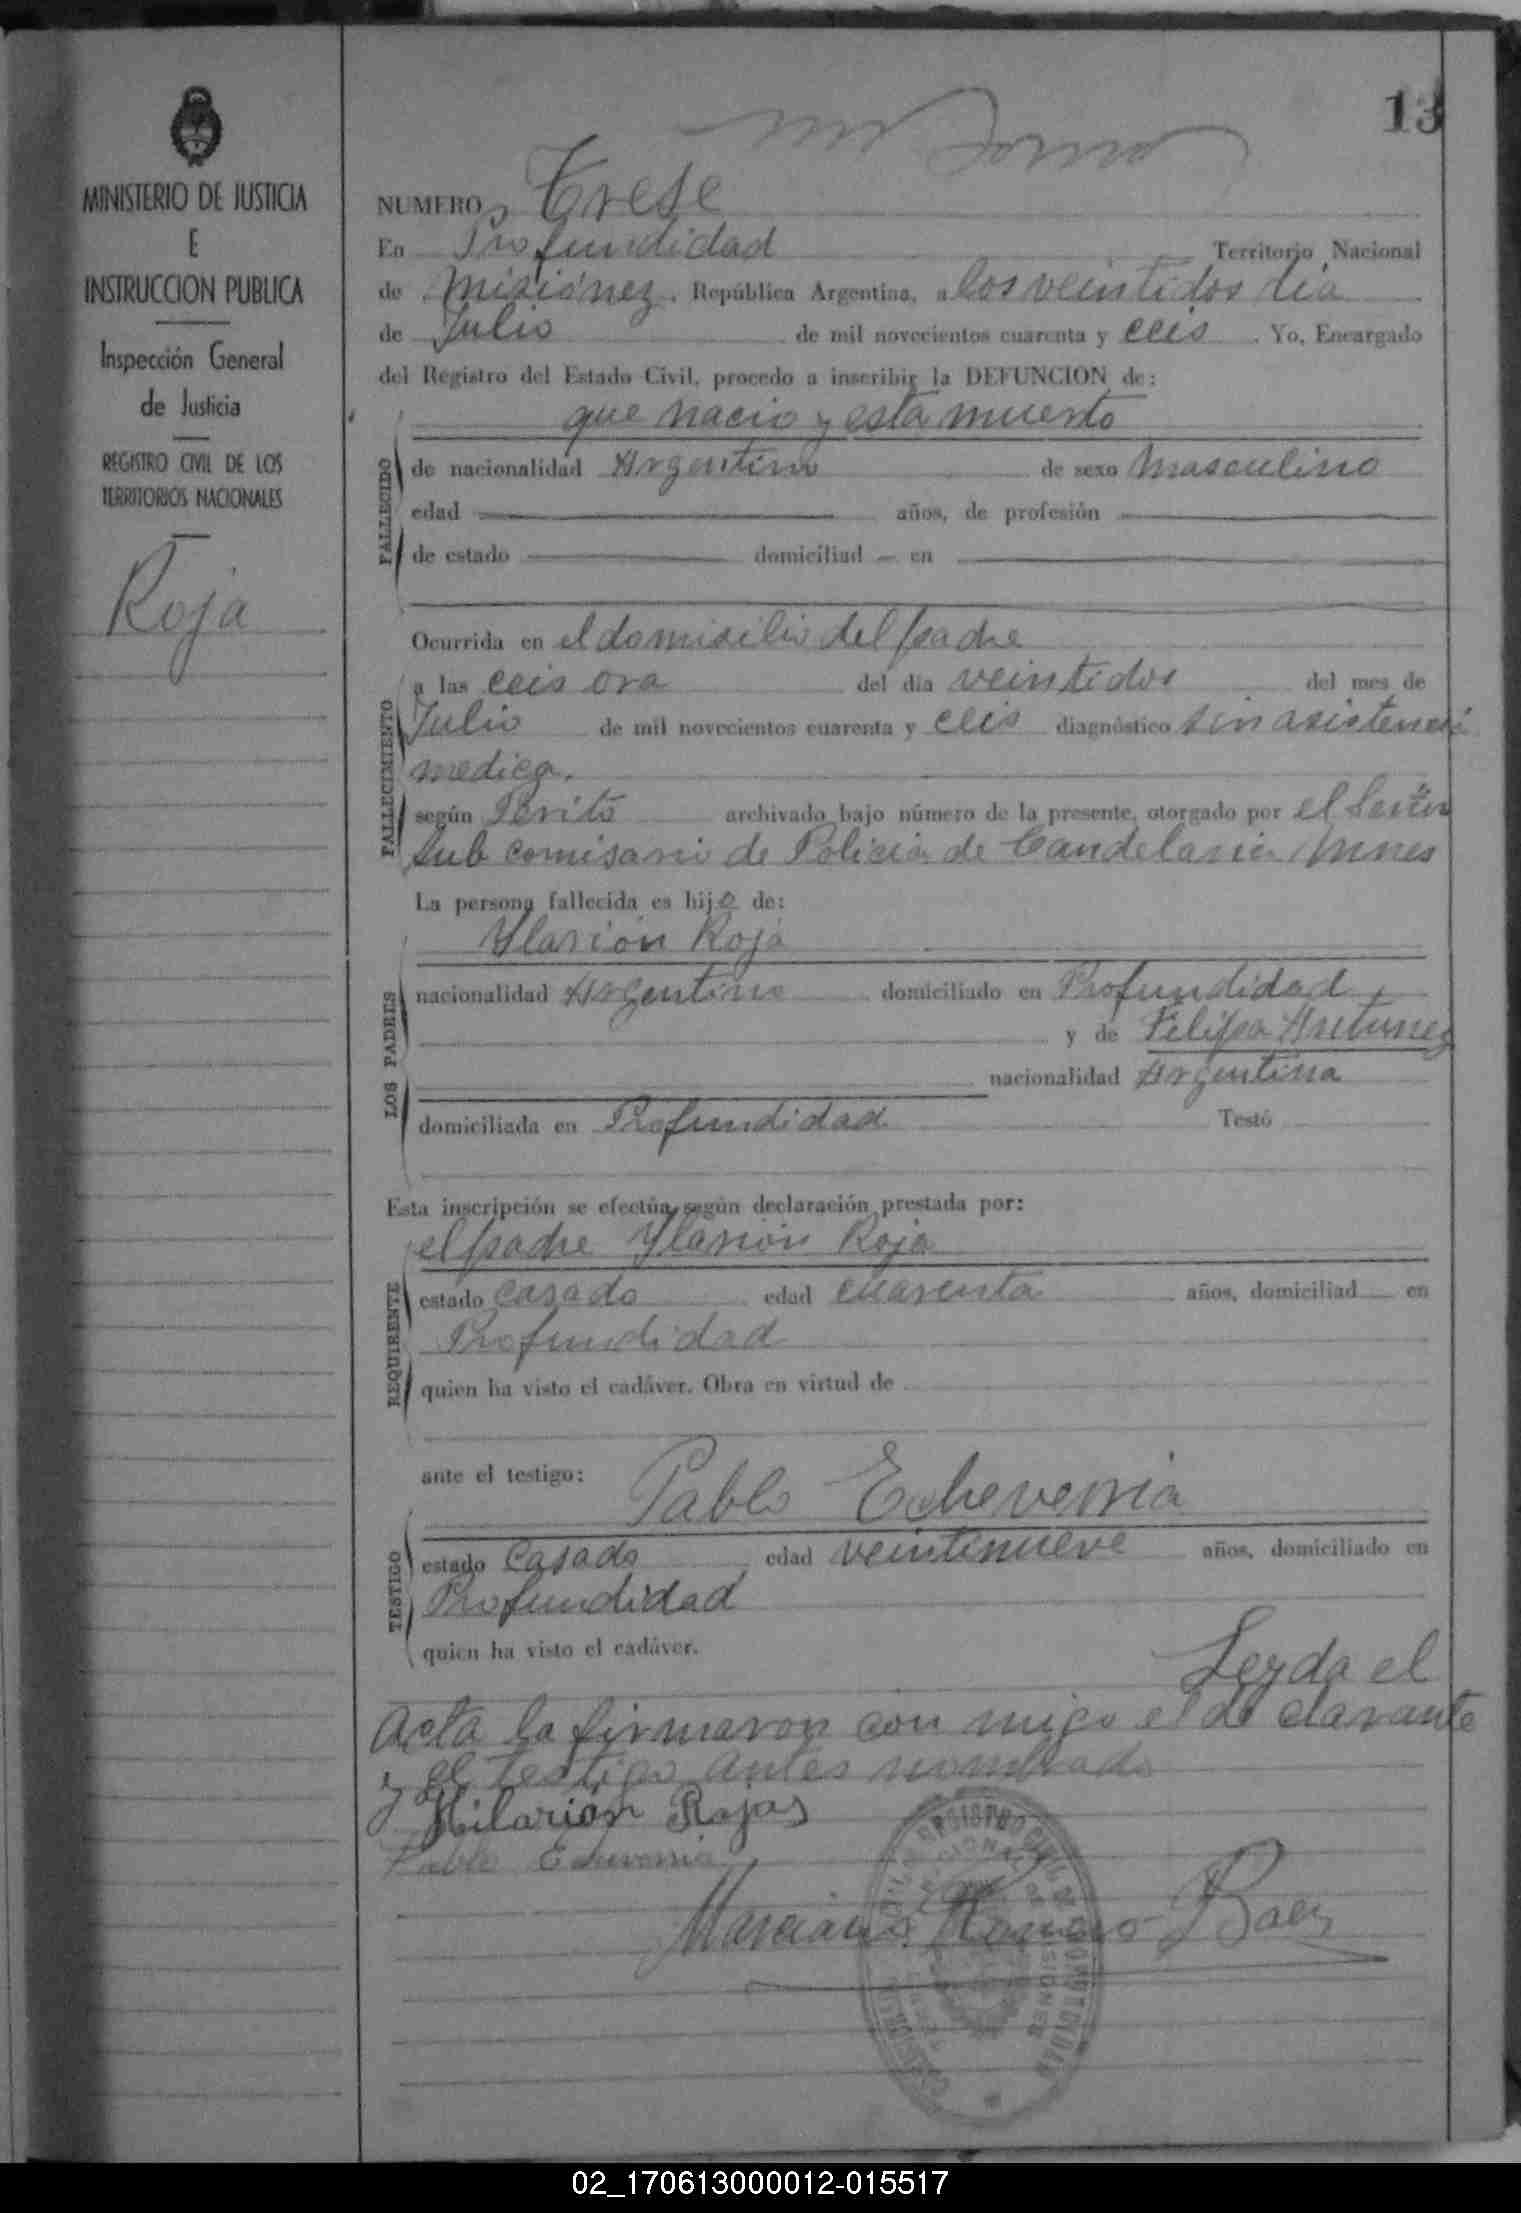 13
MINISTERIO DE JUSTICIA
E
INSTRUCCION PUBLICA
Inspección General
de Justicia
REGISTRO CIVIL DE LOS
TERRITORIOS NACIONALES
Roja
NUMERO Trese
En Profundidad Territorio Nacional
de Misiónez. República Argentina, a los veintidos dia
de Julio de mil novecientos cuarenta y ceis. Yo, Encargado
del Registro del Estado Civil, procedo a inscribir la DEFUNCION de:
que nacio y esta muerto
FALLECIDO
de nacionalidad Argentino de sexo Masculino
edad años, de profesión
de estado domiciliad en
Ocurrida en el domisilio del padre
FALLECIMIENTO
a las ceis ora del día veintidos del mes de
Julio de mil novecientos cuarenta y ceis diagnóstico sin asistencia
medica.
según Perito archivado bajo número de la presente, otorgado por el Señor
Sub comisario de Policia de Candelaria Mnes
La persona fallecida es hijo de:
LOS PADRES
Ylarión Roja
nacionalidad Argentino domiciliado en Profundidad
y de Felipa Antunez
nacionalidad Argentina
domiciliada en Profundidad Testó
Esta inscripción se efectúa según declaración prestada por:
REQUIRENTE
el padre Ylarión Roja
estado casado edad cuarenta años, domiciliad en
Profundidad
quien ha visto el cadáver. Obra en virtud de
ante el testigo: Pablo Echeverria
TESTIGO
estado Casado edad veintinueve años, domiciliado en
Profundidad
quien ha visto el cadáver.
Leyda el
Acta la firmaron con migo el de clarante
y el testigo antes nombrado
Hilarión Rojas
Pablo Echeverria
Marciano Romero Baez
REGISTRO CIVIL
MISIONES
02_170613000012-015517